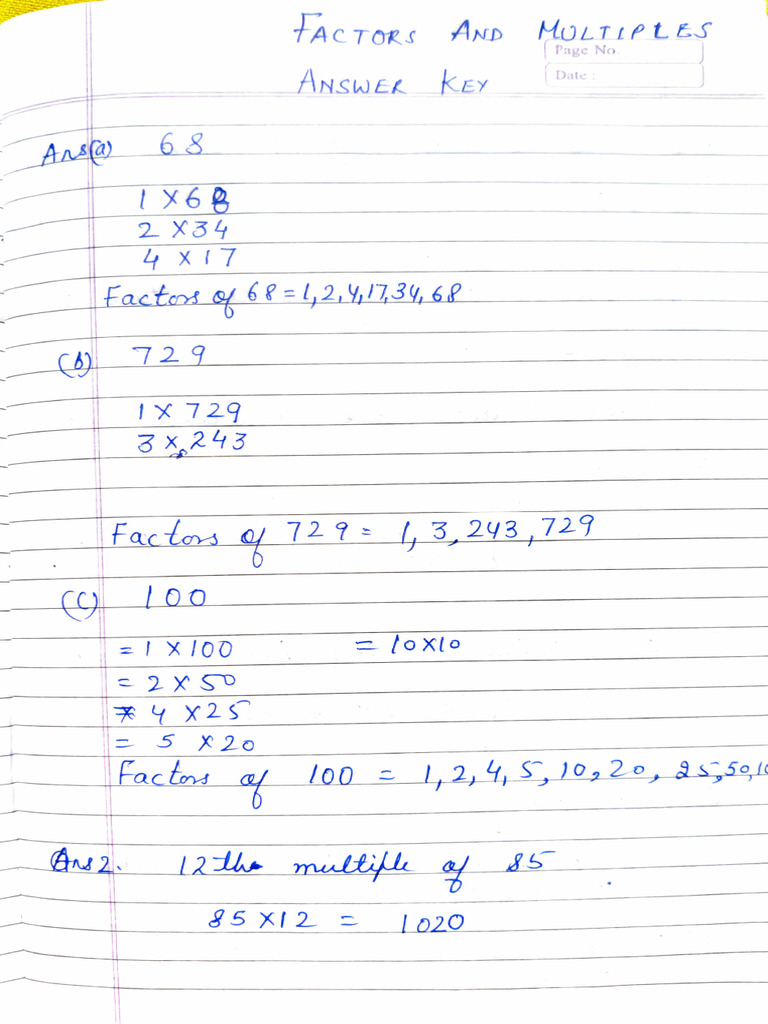 FACTORS AND MULTIPLES
Page No.
ANSWER KEY
Date :
Ans(a) 68
1 × 68
2 × 34
4 × 17
Factors of 68 = 1, 2, 4, 17, 34, 68
(b) 729
1 × 729
3 × 243
Factors of 729 = 1, 3, 243, 729
(C) 100
= 1 × 100 = 10×10
= 2 × 50
* 4 × 25
= 5 × 20
Factors of 100 = 1, 2, 4, 5, 10, 20, 25, 50, 10
Ans 2. 12th multiple of 85
85 × 12 = 1020